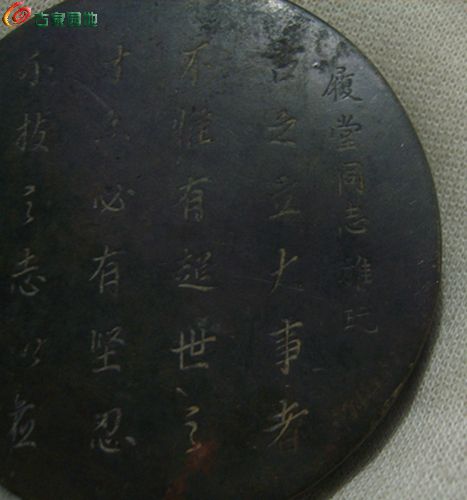 古泉园地
履堂同志雅玩
古之立大事者
不惟有超世之
才亦必有坚忍
不拔之志